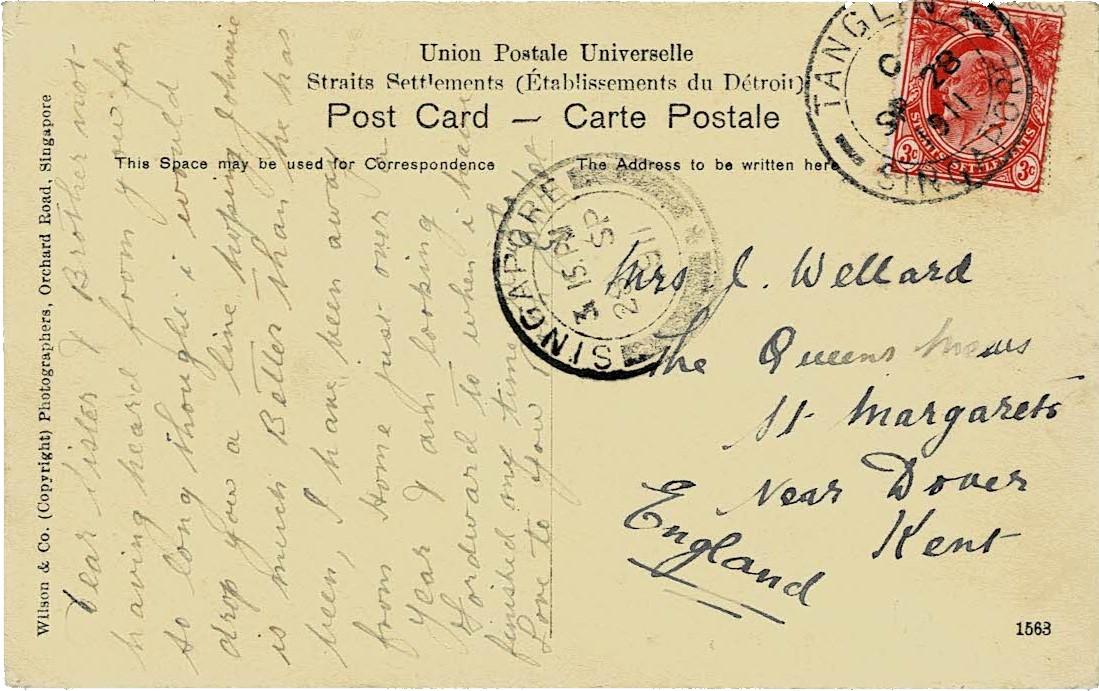 Union Postale Universelle
Straits Settlements (Établissements du Détroit)
Post Card — Carte Postale
This Space may be used for Correspondence
The Address to be written here
Wilson & Co. (Copyright) Photographers, Orchard Road, Singapore
Dear Sister & Brother not
having heard from you for
so long thought i would
drop you a line hoping Johnnie
is much Better than he has
been, I have been away
from Home just over a
year & am looking
forward to when i have
finished my time
Love to you
TANGLIN
SINGAPORE
C
SP 28
911
3c 3c
SINGAPORE
3 15 PM
SP
28
1911
Mrs J. Wellard
The Queens Mews
St Margarets
Near Dover
Kent
England
1563